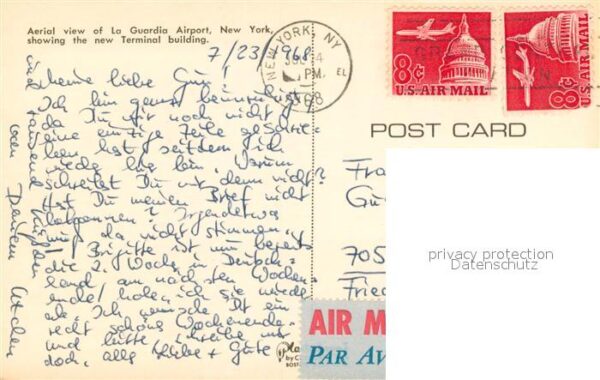 Aerial view of La Guardia Airport, New York,
showing the new Terminal building.
7/23/1968
NEW YORK, NY
PM
1968
8¢
U.S. AIR MAIL
8¢
U.S. AIR MAIL
POST CARD
meine liebe
Ich bin ganz
da Du mir noch nicht
eine einzige Zeile geschrie-
ben hast seitdem ich
wieder hier bin. Warum
schreibst Du mir denn nicht?
Hast Du meinen Brief nicht
bekommen? Irgendetwas
muß da nicht stimmen.
Brigitte ist nun bereits
die 2. Woche in Deutsch-
land am nächsten Wochen-
ende hole ich sie wieder
ab. Ich wünsche Dir ein
recht schönes Wochenende
und bitte schreibe mir
doch. alles Liebe + Gute
von Deinem
Fra
Gü
705
Fried
privacy protection
Datenschutz
AIR M
PAR AV